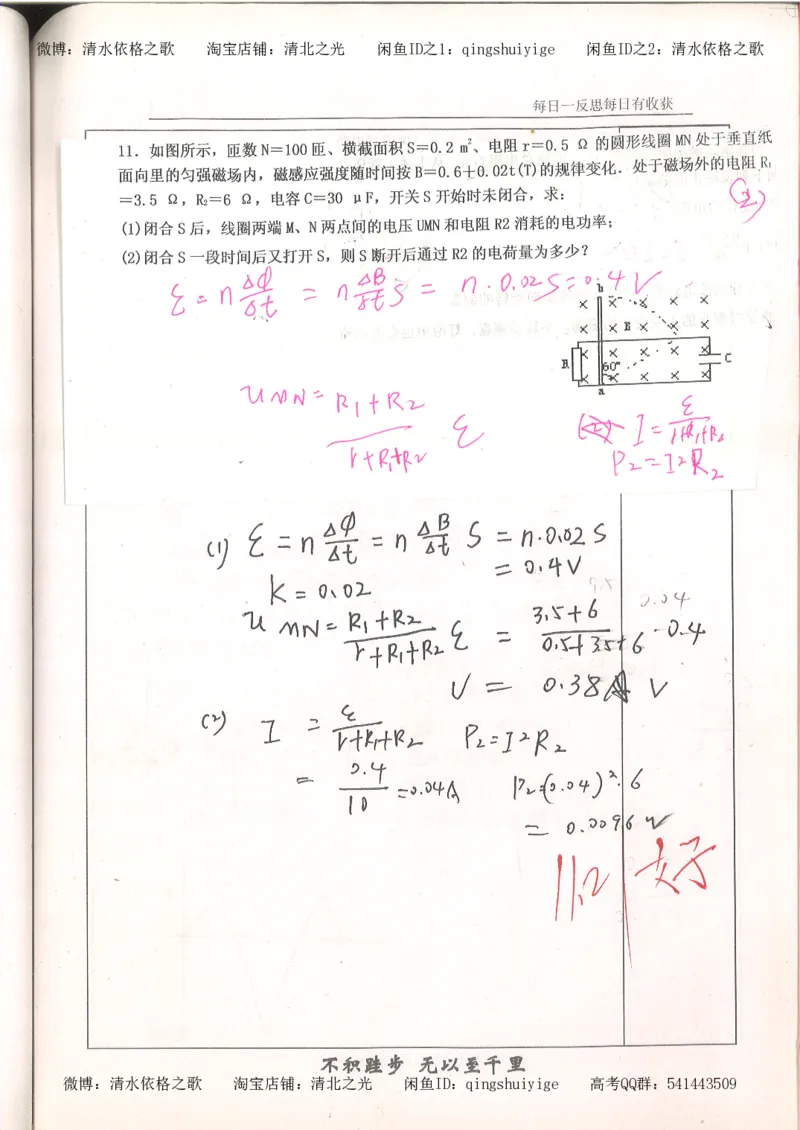 微博：清水依格之歌 淘宝店铺：清北之光 闲鱼ID之1：qingshuiyige 闲鱼ID之2：清水依格之歌
每日一反思每日有收获
11．如图所示，匝数N＝100匝、横截面积S＝0.2 m²、电阻r＝0.5 Ω的圆形线圈MN处于垂直纸
面向里的匀强磁场内，磁感应强度随时间按B＝0.6＋0.02t(T)的规律变化．处于磁场外的电阻R₁
＝3.5 Ω，R₂＝6 Ω，电容C＝30 μF，开关S开始时未闭合，求：
(2)
(1)闭合S后，线圈两端M、N两点间的电压UMN和电阻R2消耗的电功率；
(2)闭合S一段时间后又打开S，则S断开后通过R2的电荷量为多少？
ε = n ΔΦ/Δt = n ΔB/Δt S = n·0.02S = 0.4V
b
B
R
60°
C
a
UMN = (R₁+R₂)/(r+R₁+R₂) ε
(2) I = ε/(r+R₁+R₂)
P₂=I²R₂
(1) ε = n ΔΦ/Δt = n ΔB/Δt S = n·0.02 S
= 0.4V
K = 0.02
0.04
UMN = (R₁+R₂)/(r+R₁+R₂) ε = (3.5+6)/(0.5+3.5+6) ·0.4
U = 0.38 V
(2) I = ε/(r+R₁+R₂) P₂=I²R₂
= 0.4/10 =0.04A P₂=(0.04)²·6
= 0.0096 W
11.2 好
不积跬步 无以至千里
微博：清水依格之歌 淘宝店铺：清北之光 闲鱼ID：qingshuiyige 高考QQ群：541443509